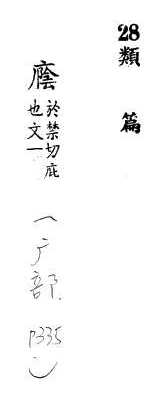 28類篇
廕於禁切庇
也文一
(广部 P335)